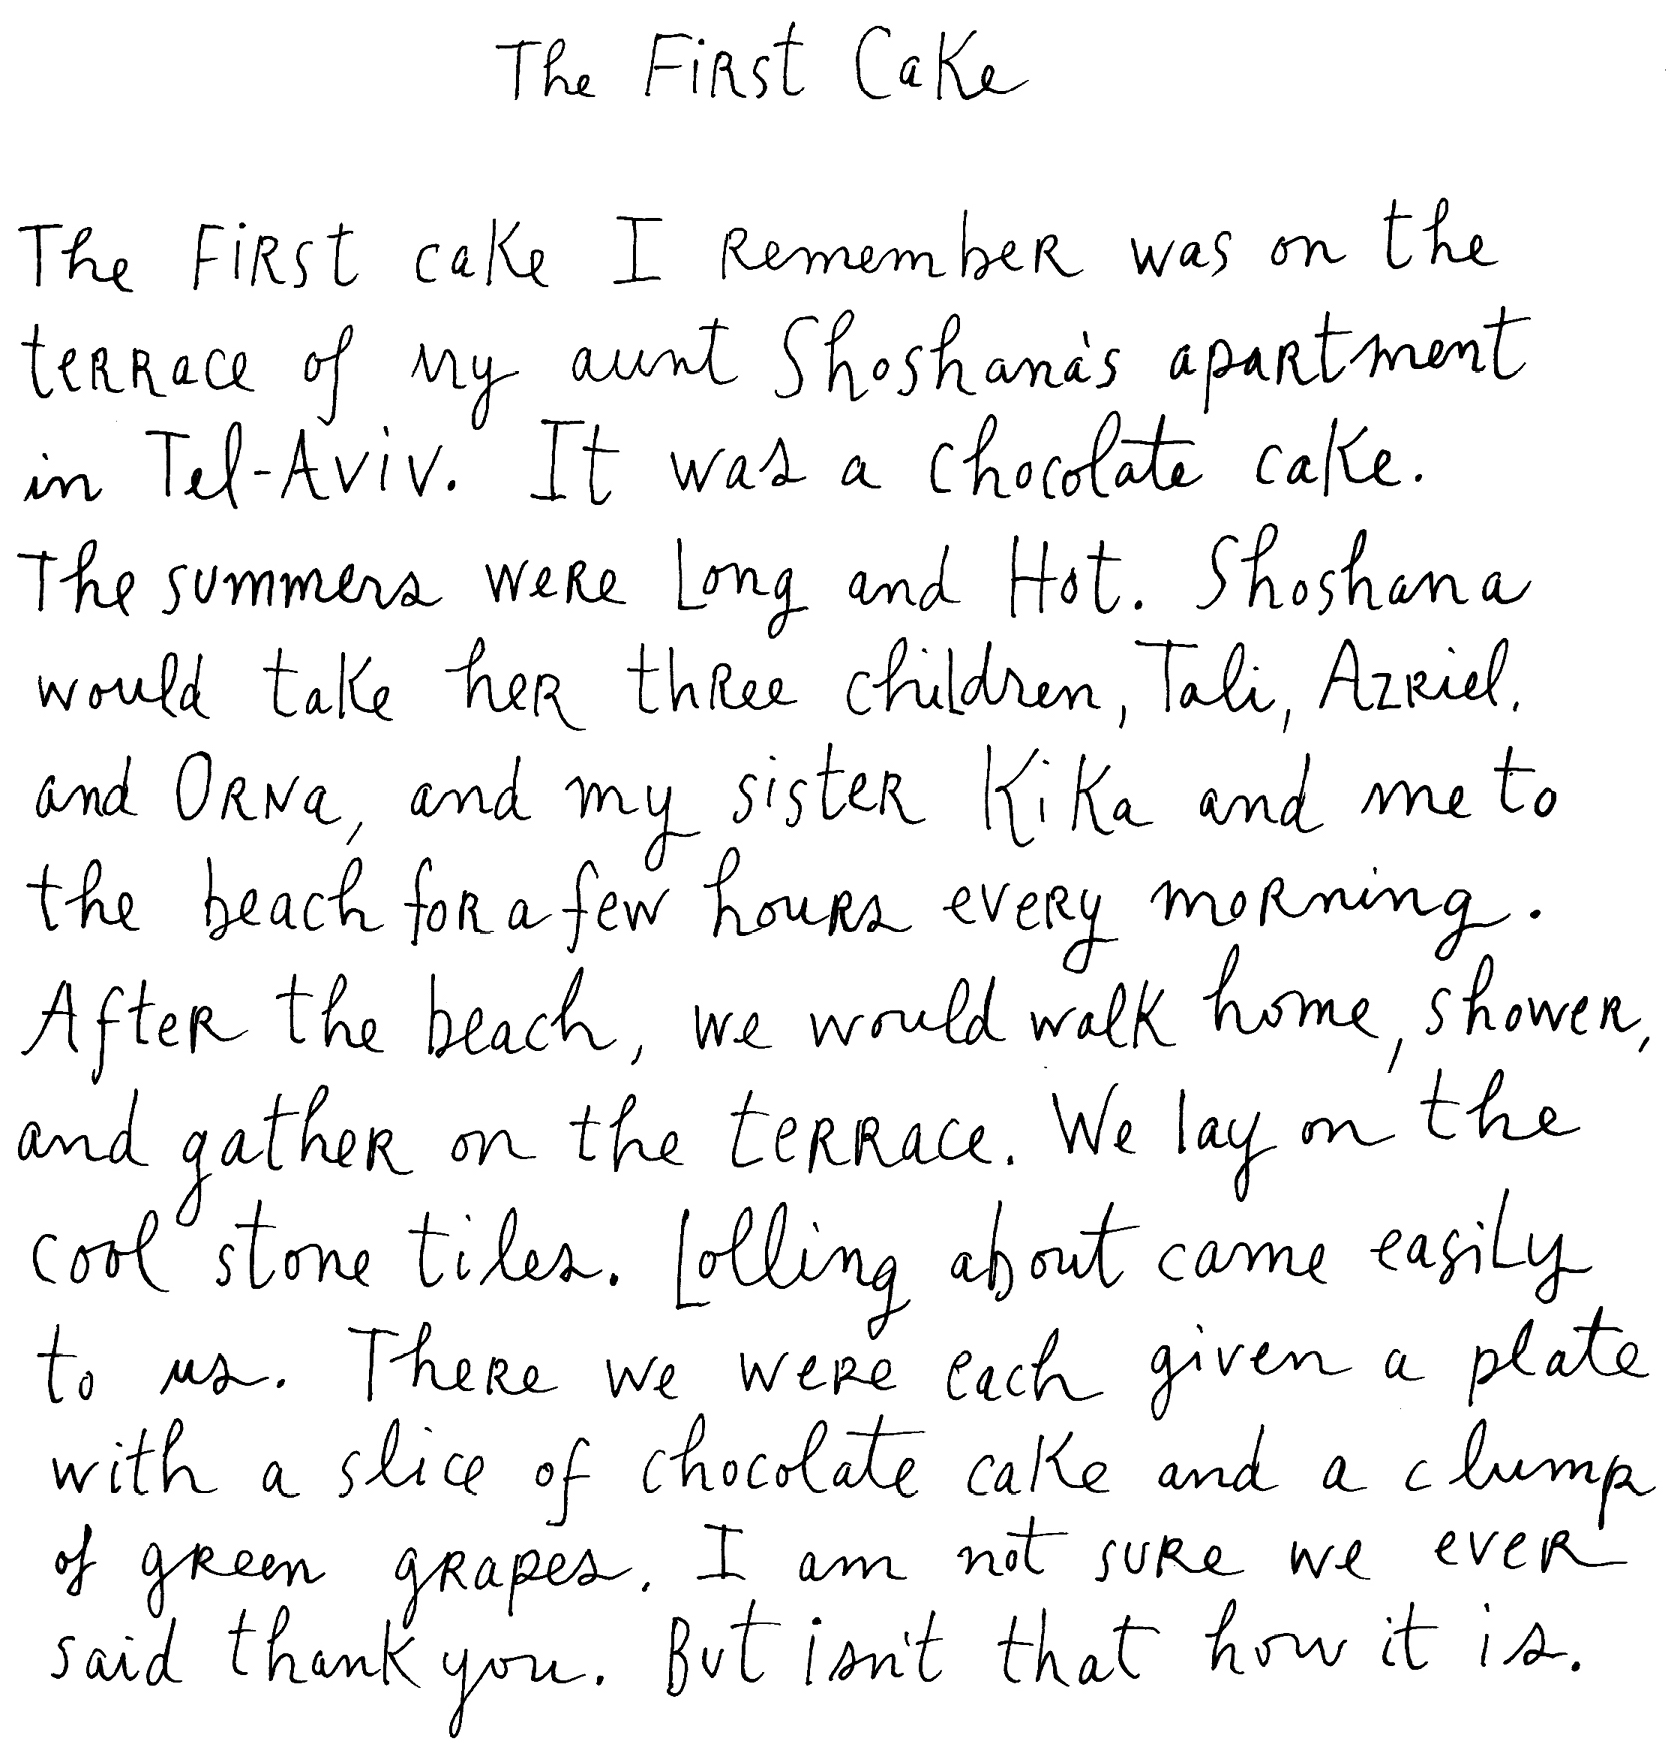 The First Cake
The First cake I Remember was on the
terrace of my aunt Shoshana's apartment
in Tel-Aviv. It was a chocolate cake.
The summers were Long and Hot. Shoshana
would take her three children, Tali, Azriel,
and Orna, and my sister Kika and me to
the beach for a few hours every morning.
After the beach, we would walk home, shower,
and gather on the terrace. We lay on the
cool stone tiles. Lolling about came easily
to us. There we were each given a plate
with a slice of chocolate cake and a clump
of green grapes. I am not sure we ever
said thank you. But isn't that how it is.